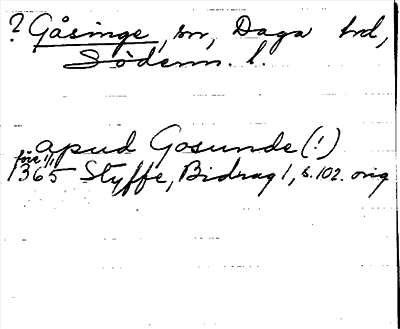 ? Gåsinge, sn, Daga hd,
Söderm. l.
apud Gosunde (!)
före 1/1
1365 Styffe, Bidrag 1, s. 102. orig